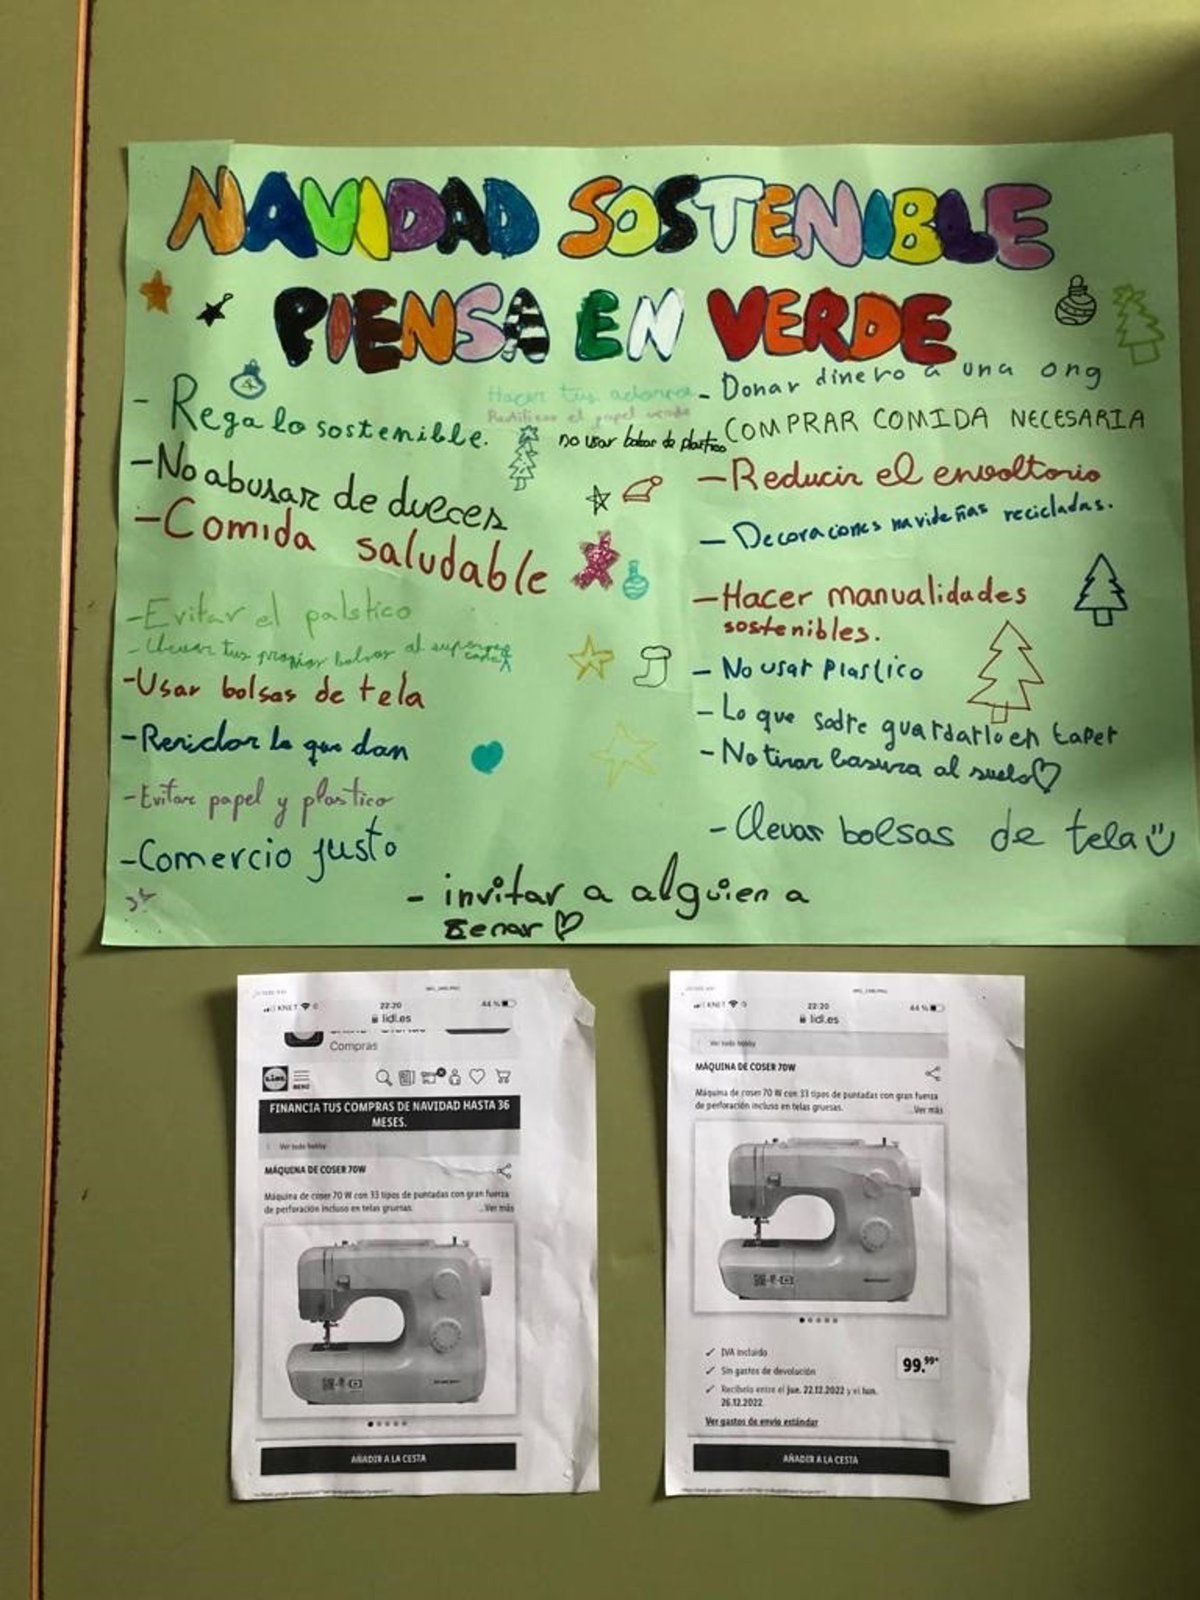 NAVIDAD SOSTENIBLE
PIENSA EN VERDE
- Regalo sostenible.
- No abusar de dulces
- Comida saludable
- Evitar el palstico
- Llevar tus propias bolsas al
- Usar bolsas de tela
- Reciclar lo que dan
- Evitar papel y plastico
- Comercio justo
Hacer tus adornos
Reutilizar el papel
no usar bolsas de plastico
- Donar dinero a una ong
COMPRAR COMIDA NECESARIA
- Reducir el envoltorio
- Decoraciones navideñas recicladas.
- Hacer manualidades
sostenibles.
- No usar plastico
- Lo que sobre guardarlo en taper
- No tirar basura al suelo
- Llevar bolsas de tela
- invitar a alguien a
cenar
KNET
22:20
44 %
lidl.es
Compras
LIDL
MENÚ
FINANCIA TUS COMPRAS DE NAVIDAD HASTA 36
MESES.
Ver todo hobby
MÁQUINA DE COSER 70W
Máquina de coser 70 W con 33 tipos de puntadas con gran fuerza
de perforación incluso en telas gruesas. ...Ver más
AÑADIR A LA CESTA
KNET
22:20
44 %
lidl.es
Ver todo hobby
MÁQUINA DE COSER 70W
Máquina de coser 70 W con 33 tipos de puntadas con gran fuerza
de perforación incluso en telas gruesas. ...Ver más
✓ IVA incluido
✓ Sin gastos de devolución
✓ Recíbelo entre el jue. 22.12.2022 y el lun.
26.12.2022
99.99*
Ver gastos de envío estándar
AÑADIR A LA CESTA